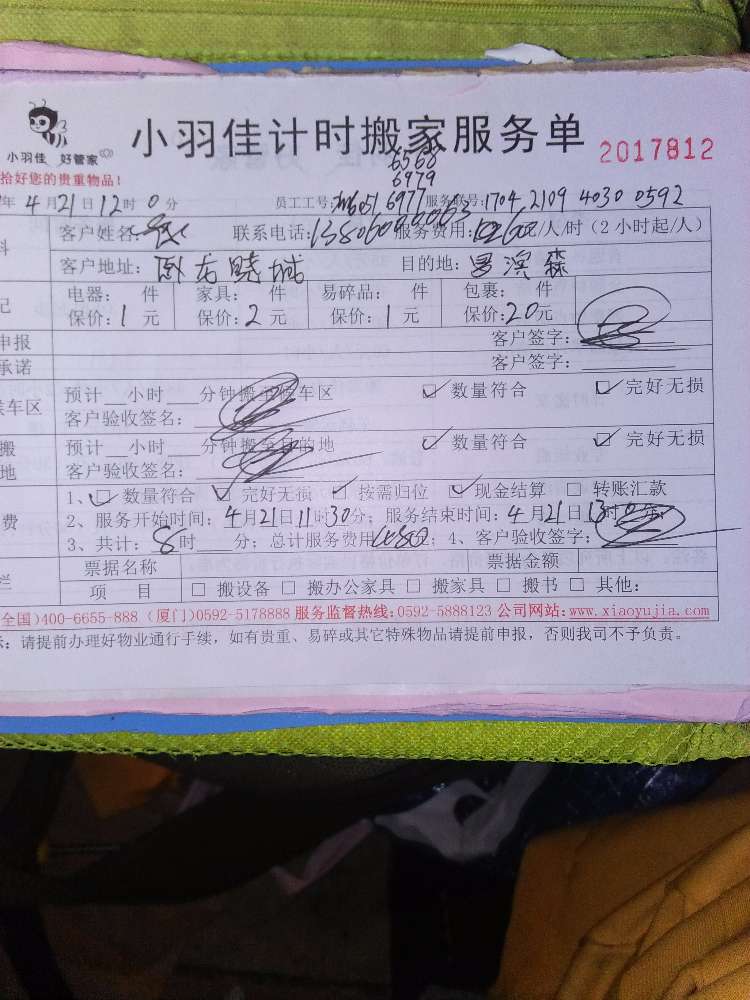 小羽佳计时搬家服务单
2017812
小羽佳 好管家
拾好您的贵重物品！
6568
6979
年4月21日12时0分 员工工号: 6977 服务联号:1704 2109 4030 0592
客户姓名: 联系电话: 服务费用: 元/人/时（2小时起/人）
客户地址: 卧龙晓城 目的地: 罗滨森
电器： 件 家具： 件 易碎品： 件 包裹： 件
保价:1元 保价:2元 保价:1元 保价:20元
申报 客户签字:
承诺 客户签字:
车区 预计__小时__分钟搬至候车区 ☑数量符合 ☑完好无损
客户验收签名:
搬 预计__小时__分钟搬至目的地 ☑数量符合 ☑完好无损
地 客户验收签名:
1、☑数量符合 ☑完好无损 ☑按需归位 ☑现金结算 □转账汇款
费 2、服务开始时间: 4月21日11时30分；服务结束时间: 4月21日13时0分；
3、共计: 8时 分；总计服务费用 480；4、客户验收签字:
票据名称 票据金额
栏 项 目 □搬设备 □搬办公家具 □搬家具 □搬书 □其他:
全国)400-6655-888 (厦门)0592-5178888 服务监督热线:0592-5888123 公司网站:www.xiaoyujia.com
示: 请提前办理好物业通行手续，如有贵重、易碎或其它特殊物品请提前申报，否则我司不予负责。